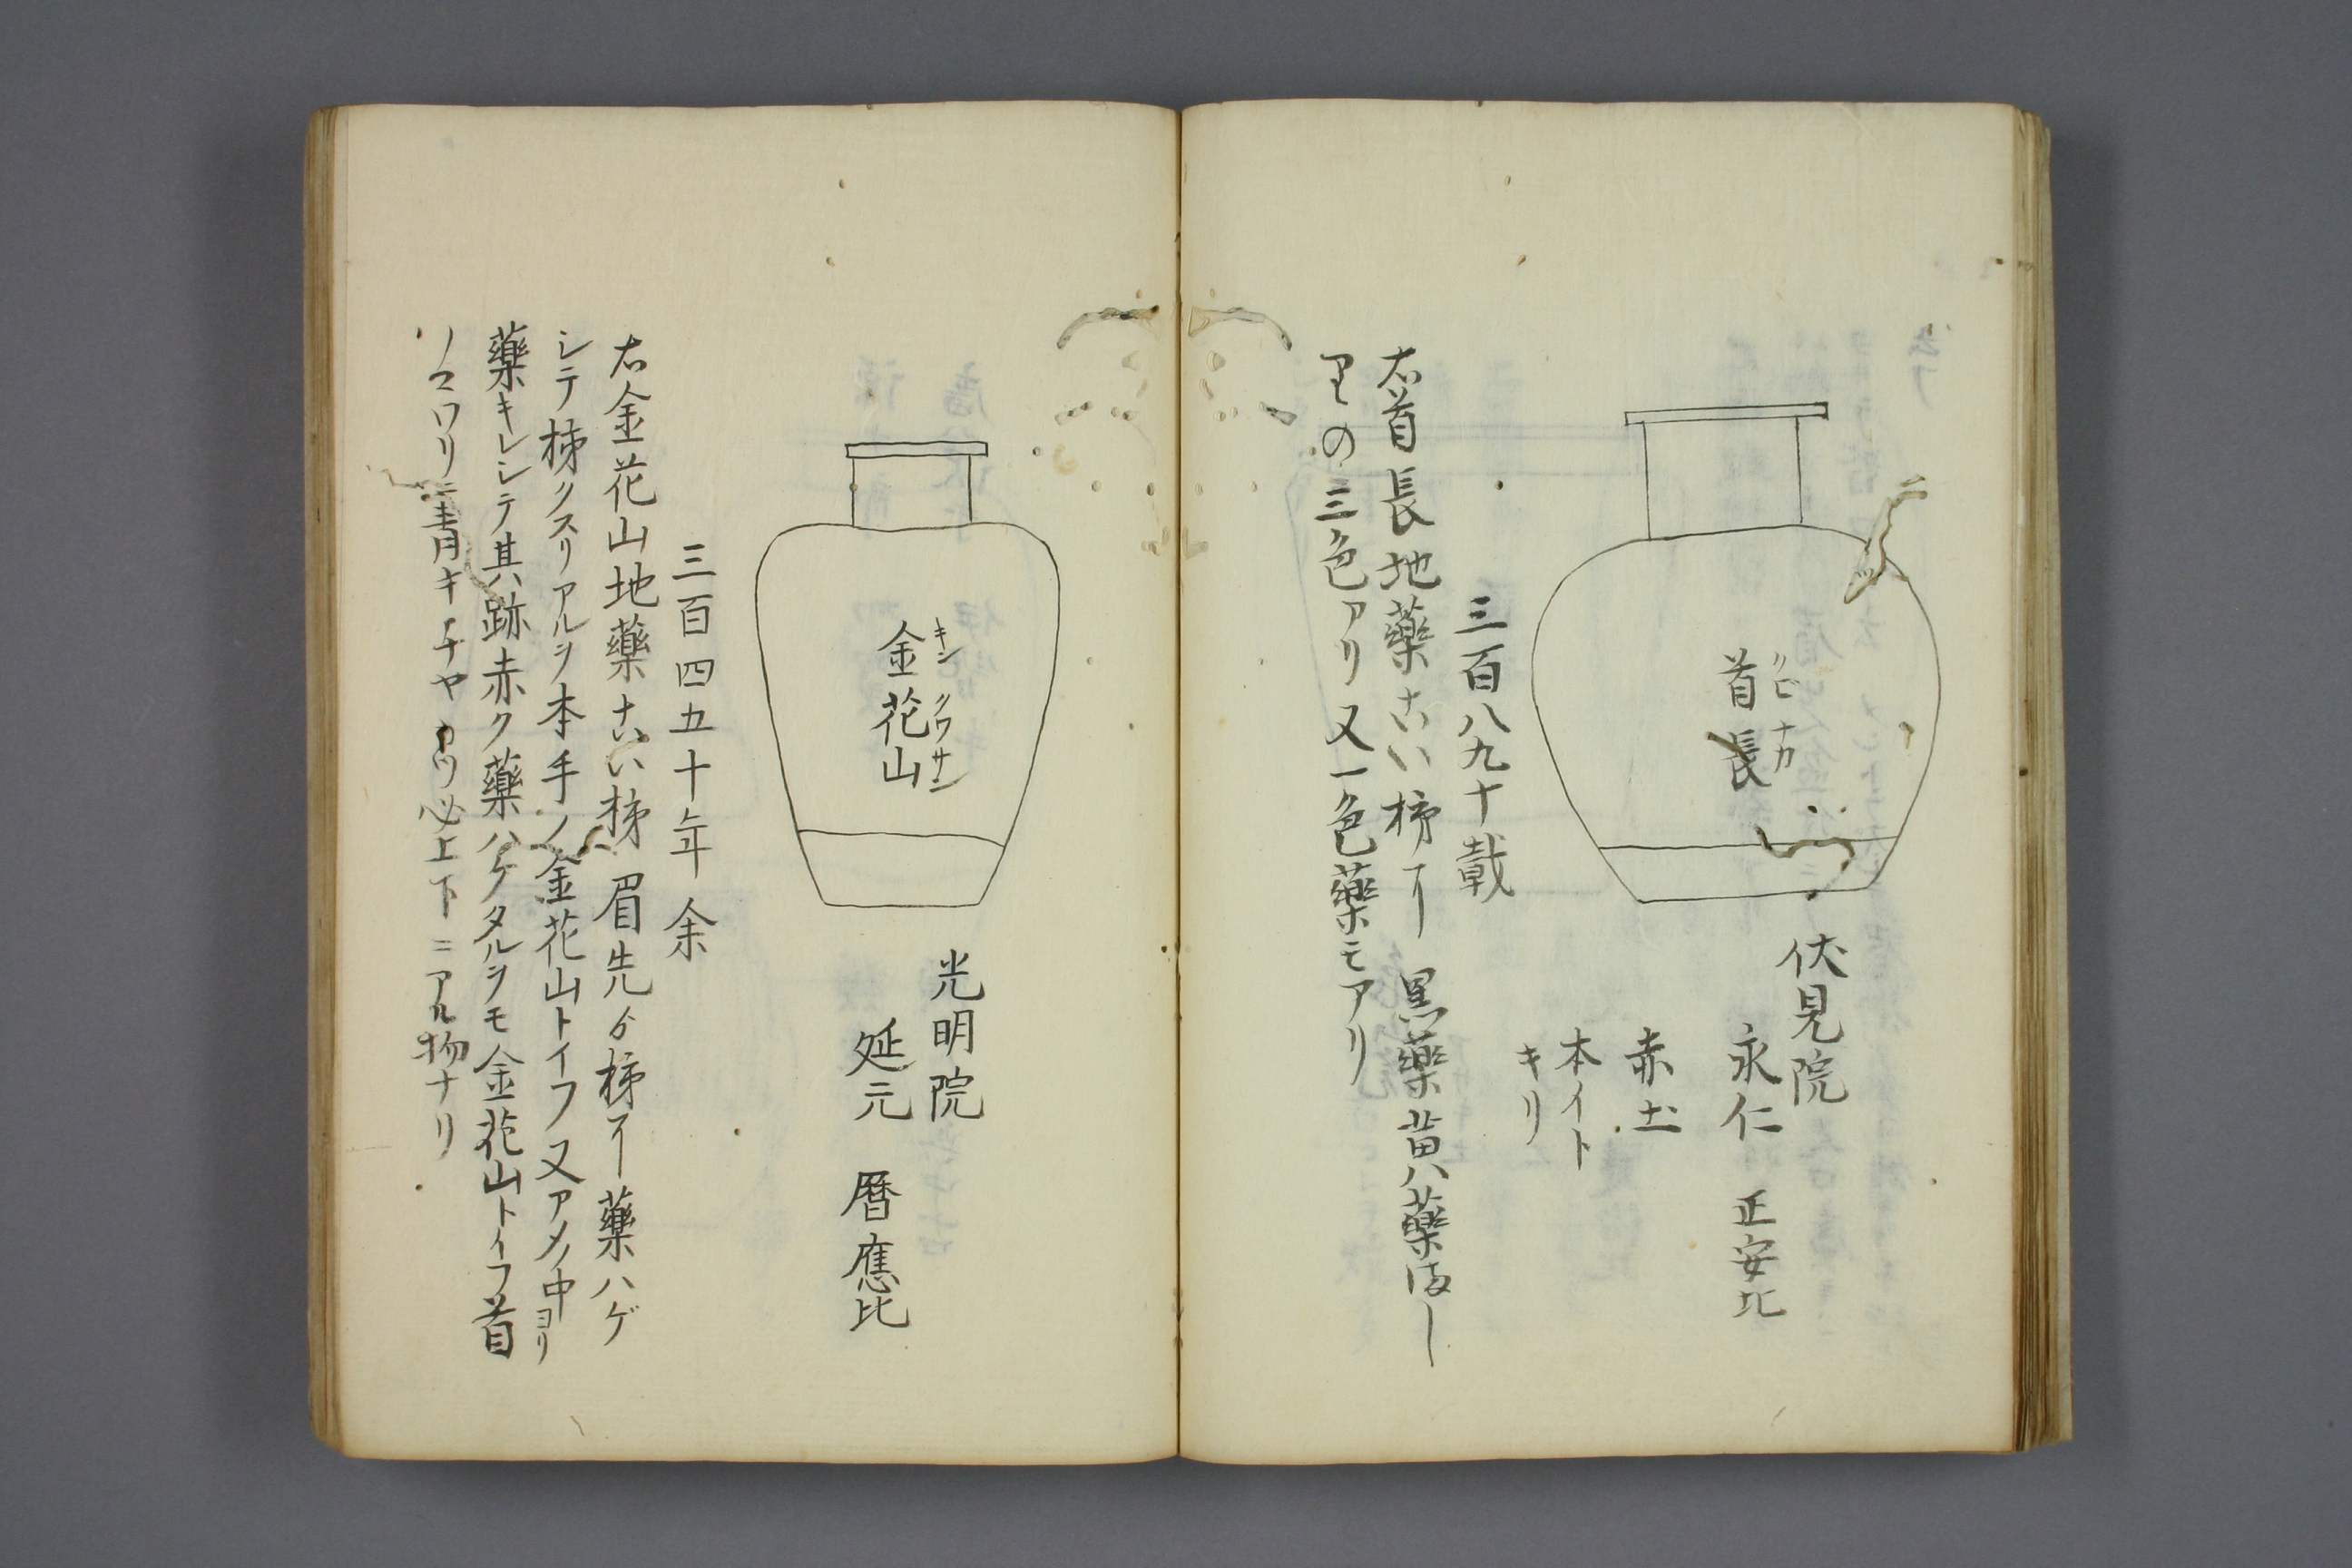 首長
クビナガ
伏見院
永仁 正安比
赤土
本イト
キリ
三百八九十載
右首長地薬こい柿
黒薬黄ハ薬
の三色アリ又一色薬モアリ
金花山
キンクワサン
光明院
延元 暦應比
三百四五十年余
右金花山地薬こい柿眉先ゟ柿 薬ハゲ
シテ柿クスリアルヲ本手ノ金花山トイフ又アメノ中ヨリ
薬キレシテ其跡赤ク薬ハゲタルヲモ金花山トイフ首
ノマワリニ青キチヤ 必上下ニアル物ナリ